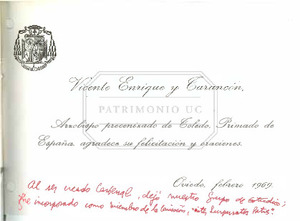 Vicente Enrique y Tarancón,
PATRIMONIO UC
Arzobispo preconizado de Toledo, Primado de
España agradece su felicitación y oraciones.
Oviedo, febrero 1969.
Al ser creado Cardenal, dejó nuestro Grupo de
fue incorporado como miembro de la Comisión